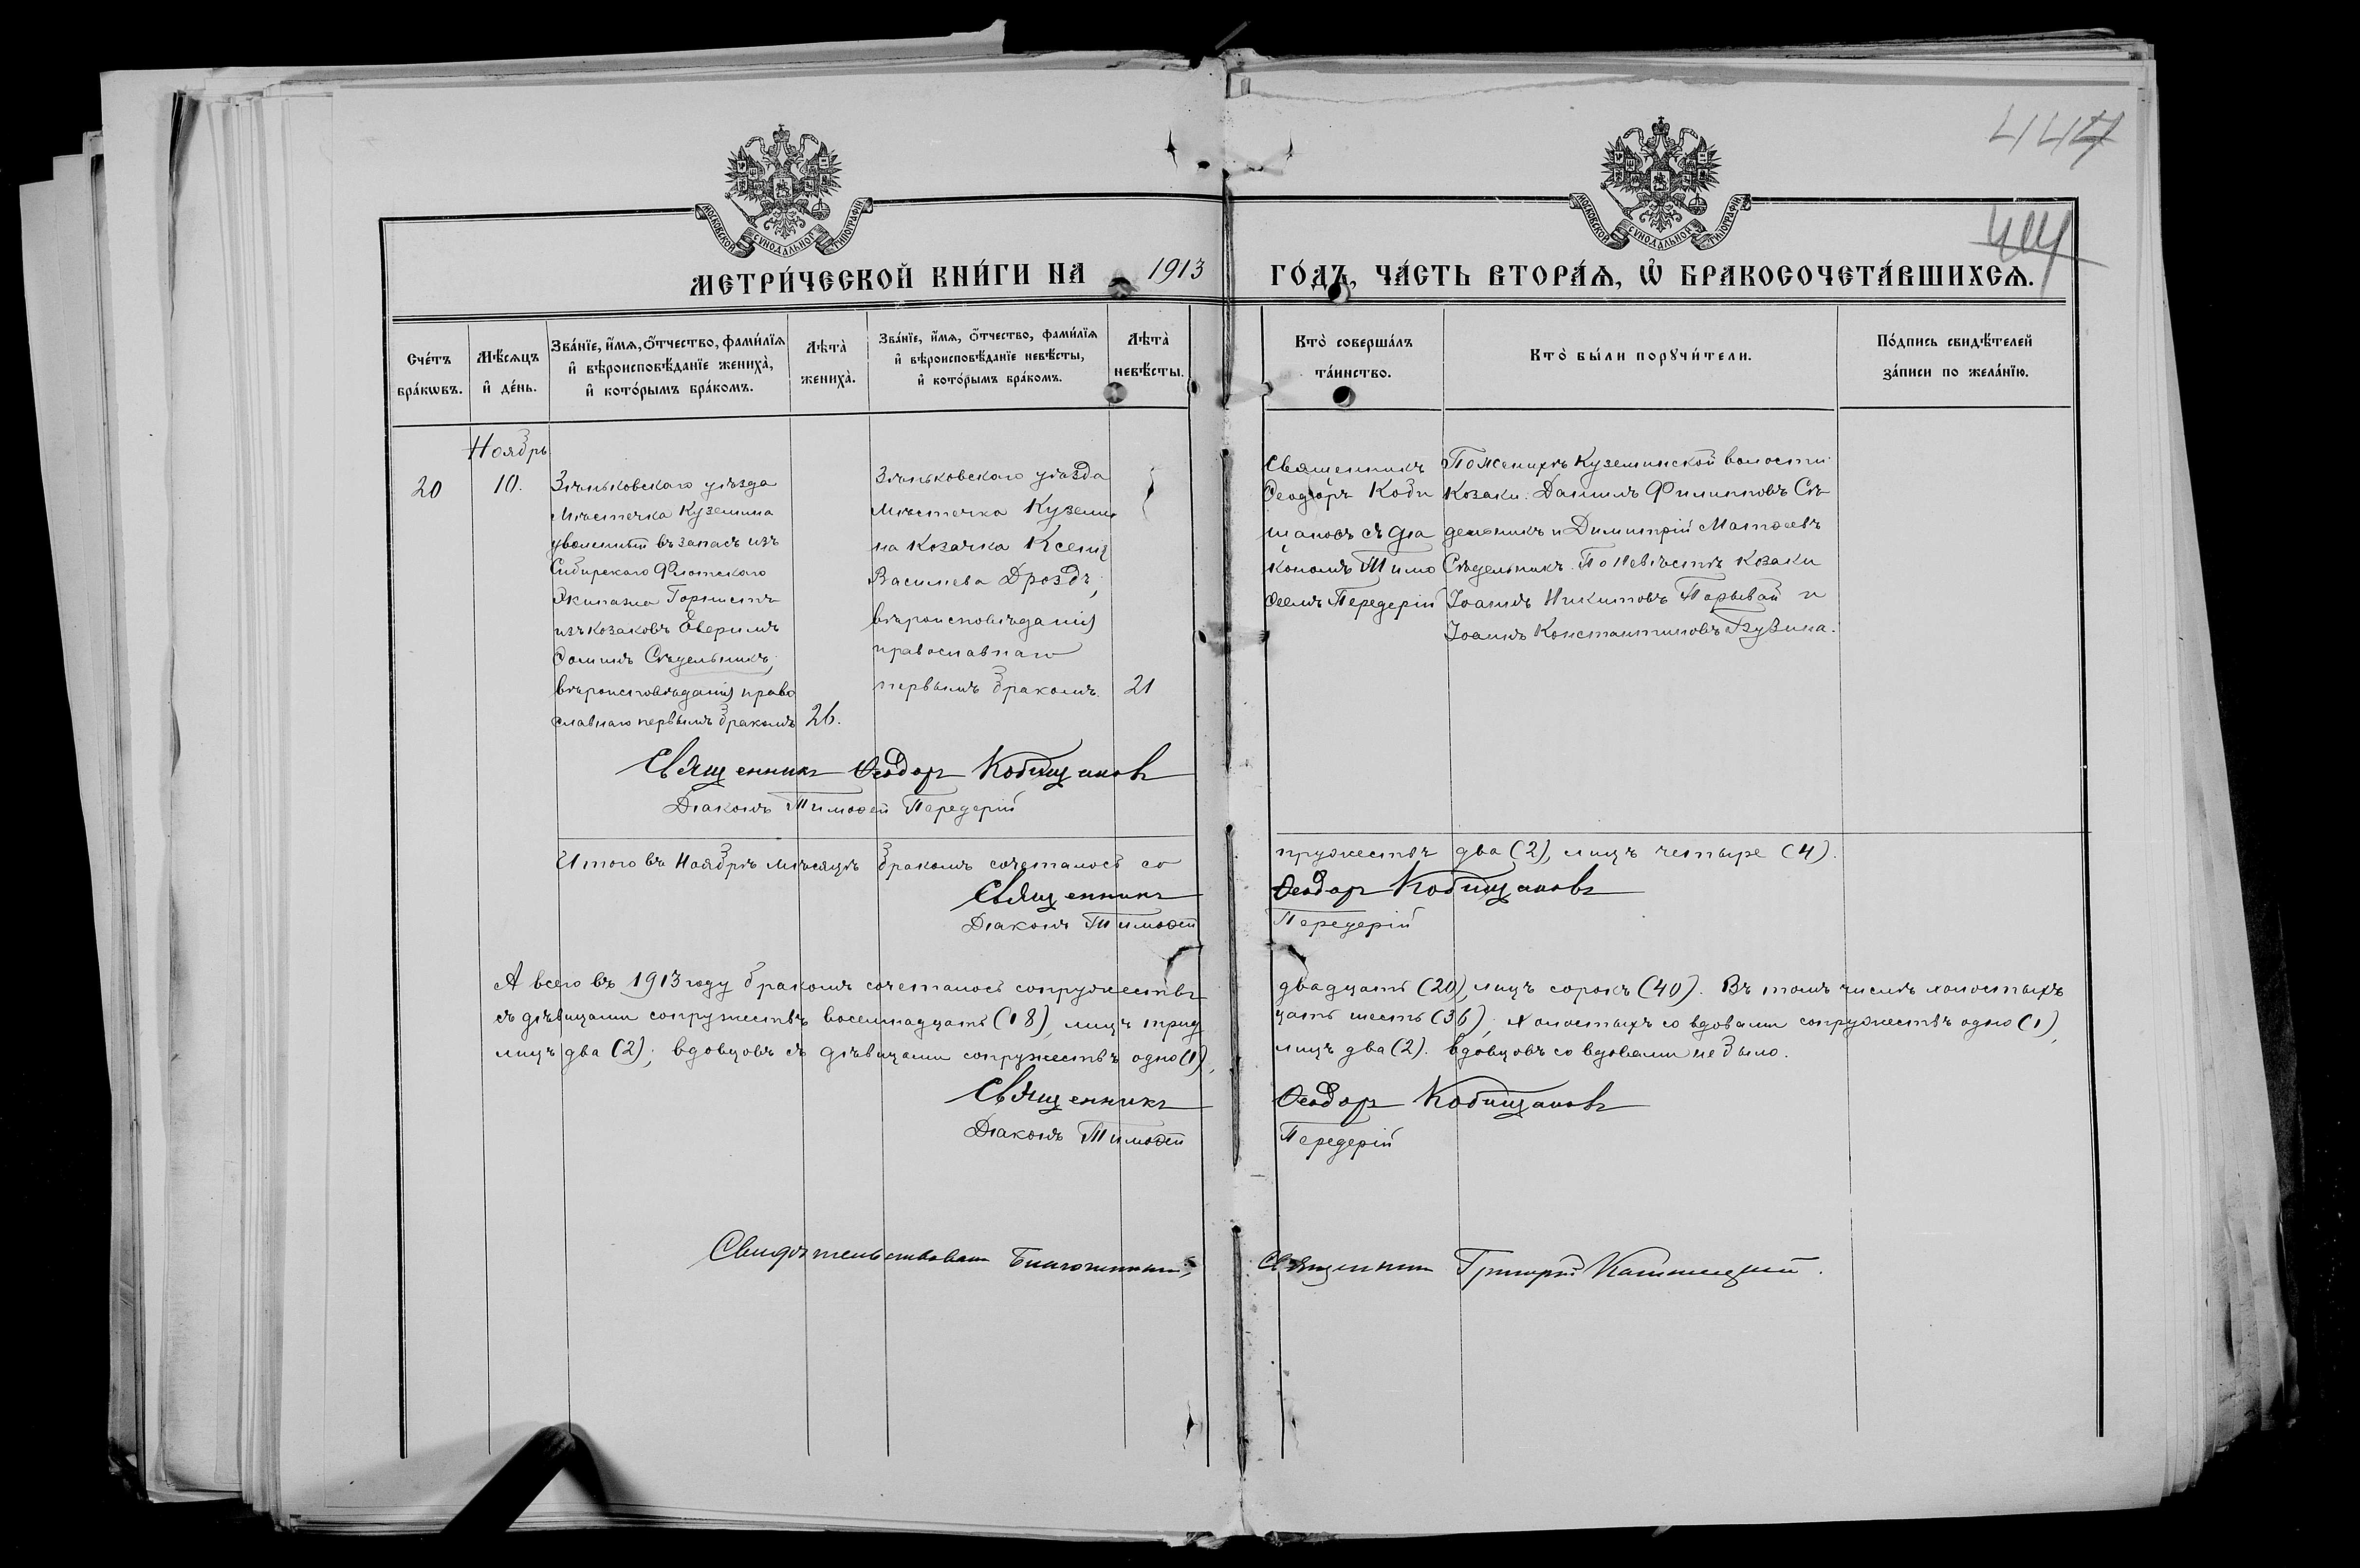 447
МОСКОВСКОЙ СУНОДАЛЬНОЙ ТИПОГРАФІИ
МОСКОВСКОЙ СУНОДАЛЬНОЙ ТИПОГРАФІИ
МЕТРИ́ЧЕСКОЙ КНИ́ГИ НА 1913 ГО́ДЪ, ЧА́СТЬ ВТОРА́Ѧ, Ѽ БРАКОСОЧЕТА́ВШИХСѦ.
Сче́тъ бра́кѡвъ.
Мѣ́сѧцъ и҆ де́нь.
Зва́нїе, и҆́мѧ, ѻ҆́тчество, фами́лїѧ и҆ вѣроисповѣ́данїе жениха̀, и҆ кото́рымъ бра́комъ.
Лѣта̀ жениха̀.
Зва́нїе, и҆́мѧ, ѻ҆́тчество, фами́лїѧ и҆ вѣроисповѣ́данїе невѣ́сты, и҆ кото́рымъ бра́комъ.
Лѣта̀ невѣ́сты.
Кто̀ соверша́лъ та́инство.
Кто̀ бы́ли порꙋчи́тели.
По́дпись свидѣ́телей за́писи по жела́нїю.
Ноябрь
20
10.
Зѣньковскаго уѣзда
Мѣстечка Куземина
уволенный въ запасъ изъ
Сибирскаго Флотскаго
Экипажа Горнистъ
изъ козаковъ Северинъ
Сѣдельникъ,
вѣроисповѣданія право
славнаго первымъ бракомъ
26.
Зѣньковскаго уѣзда
мѣстечка Куземи
на козачка Ксенія
Васильева Дроздъ,
вѣроисповѣданія
православнаго
первымъ бракомъ.
21
Священникъ
Ѳеодоръ Коби
щановъ съ діа
кономъ Тимо
ѳеемъ Передерій
По женихѣ Куземинской волости
козаки: Даніилъ Филипповъ Сѣ
дельникъ и Димитрій Матѳеевъ
Сѣдельникъ. По невѣстѣ козаки
Іоаннъ Никитовъ Порывай и
Іоаннъ Константиновъ Бузина.
Священникъ Ѳеодоръ Кобищановъ
Діаконъ Тимоѳей Передерій
Итого въ Ноябрѣ мѣсяцѣ бракомъ сочеталось со
пружествъ два (2), лицъ четыре (4).
Священникъ Ѳеодоръ Кобищановъ
Діаконъ Тимоѳей Передерій
А всего въ 1913 году бракомъ сочеталось сопружествъ двадцать (20), лицъ сорокъ (40). Въ томъ числѣ холостыхъ
съ дѣвицами сопружествъ восемнадцать (18), лицъ трид цать шесть (36); холостыхъ со вдовами сопружествъ одно (1),
лицъ два (2); вдовцовъ съ дѣвицами сопружествъ одно (1), лицъ два (2). Вдовцовъ со вдовами не было.
Священникъ Ѳеодоръ Кобищановъ
Діаконъ Тимоѳей Передерій
Свидѣтельствовалъ Благочинный, Священникъ Григорій